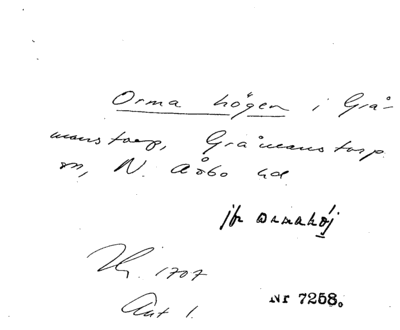 Orma högen i Grå-
manstorp, Gråmanstorp
sn, N. Åsbo hd.
jfr Ormahöj
Hj. 1707
Ant 1.
Nr 7258.